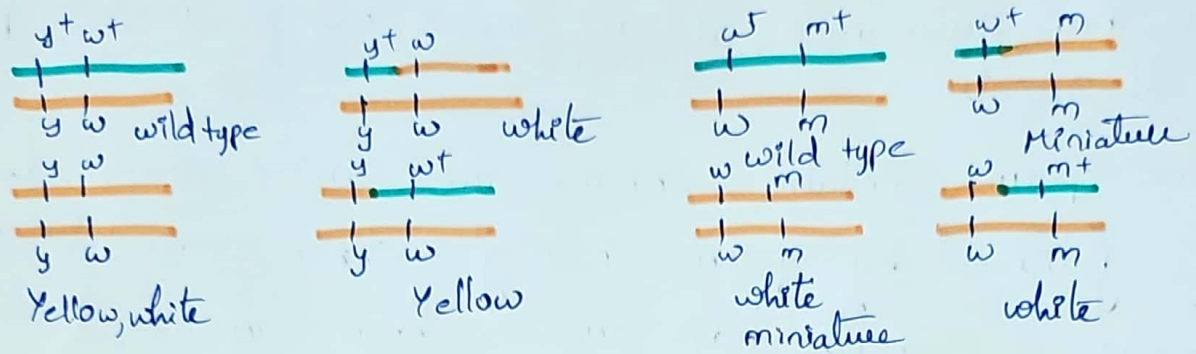 y+ w+
y w wild type
y w
y w
Yellow, white
y+ w
y w white
y w+
y w
Yellow
w+ m+
w m
wild type
w m
w m
white
miniature
w+ m
w m
Miniature
w m+
w m
white